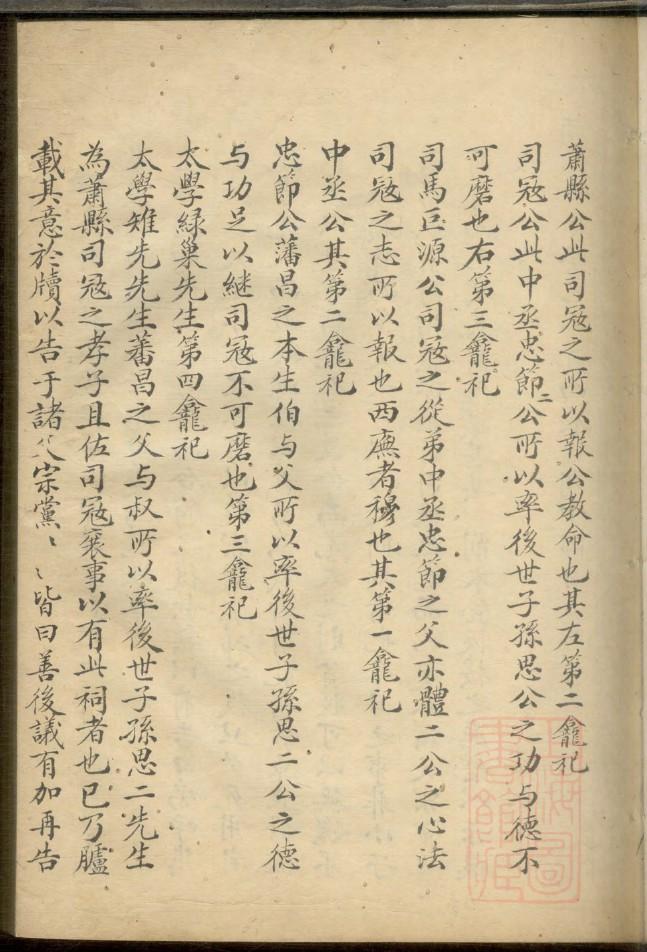 蕭縣公此司寇之所以報公教命也其左第二龕祀
司寇公此中丞忠節二公所以率後世子孫思公之功与德不
可磨也右第三龕祀
司馬巨源公司寇之從弟中丞忠節之父亦體二公之心法
司寇之志所以報也西廡者穆也其第一龕祀
中丞公其第二龕祀
忠節公藩昌之本生伯与父所以率後世子孫思二公之德
与功足以継司寇不可磨也第三龕祀
太學緑巢先生第四龕祀
太學雉先先生蕃昌之父与叔所以率後世子孫思二先生
為蕭縣司寇之孝子且佐司寇襄事以有此祠者也已乃臚
載其意於牘以告于諸父宗黨〻〻皆曰善後議有加再告